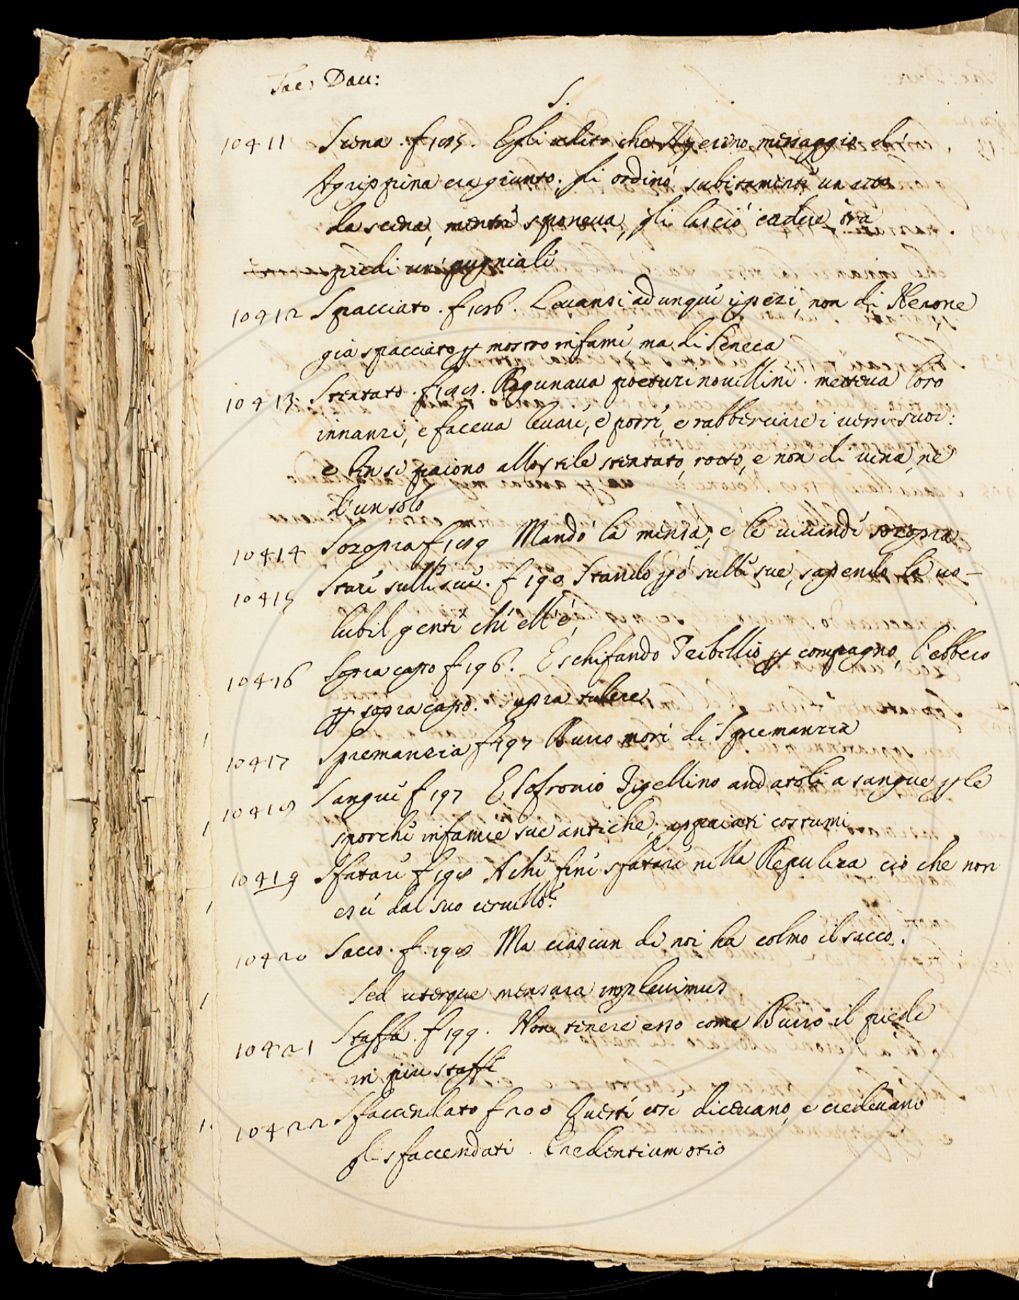 Tac: Dav:
S.
10411 Scena. f 185. Egli udito che Agerino messaggio di
Agrippina era giunto, gli ordinò subitamente un atto
da scena, mentre sponeva, gli lasciò cadere tra
piedi un pugnale
10412 Spacciato. f 186. Levansi adunque i pesi, non di Nerone
già spacciato p mostro infame ma di Seneca
10413 Stentato. f 188. Ragunava poeturi novellini. metteva loro
innanzi, e faceva levare, e porre, e rabberciare i versi suoi:
e ben si paiono allo stile stentato, rotto, e non di vena, ne
d'un solo
10414 Sozopra f 189 Mandò la mensa, e le vivande sozopra
10415 Stare sulle sue. f 190 Stando pò sulle sue, sapendo la vo-
lubil gente chi ell'è,
10416 Sopra capo f 196. E schifando Trebellio p compagno, l'ebbero
p sopra capo. supra tulere
10417 Spremanzia f 197 Burro morì di Spremanzia
10418 Sangue f 197 E Sofronio Tigellino andatoli a sangue p le
sporche infamie sue antiche, e sgraziati costumi
10419 Sfatare f 198 A che fine sfatare nella Republica ciò che non
esci dal suo cervello?
10420 Sacco. f. 198 Ma ciascun di noi ha colmo il sacco.
Sed uterque mensura implevimus
10421 Staffa. f 199. Non tenere esso come Burro il piede
in più staffe
10422 Sfaccendato f 200 Queste cose dicevano, e credevano
gli sfaccendati. Credentium otio